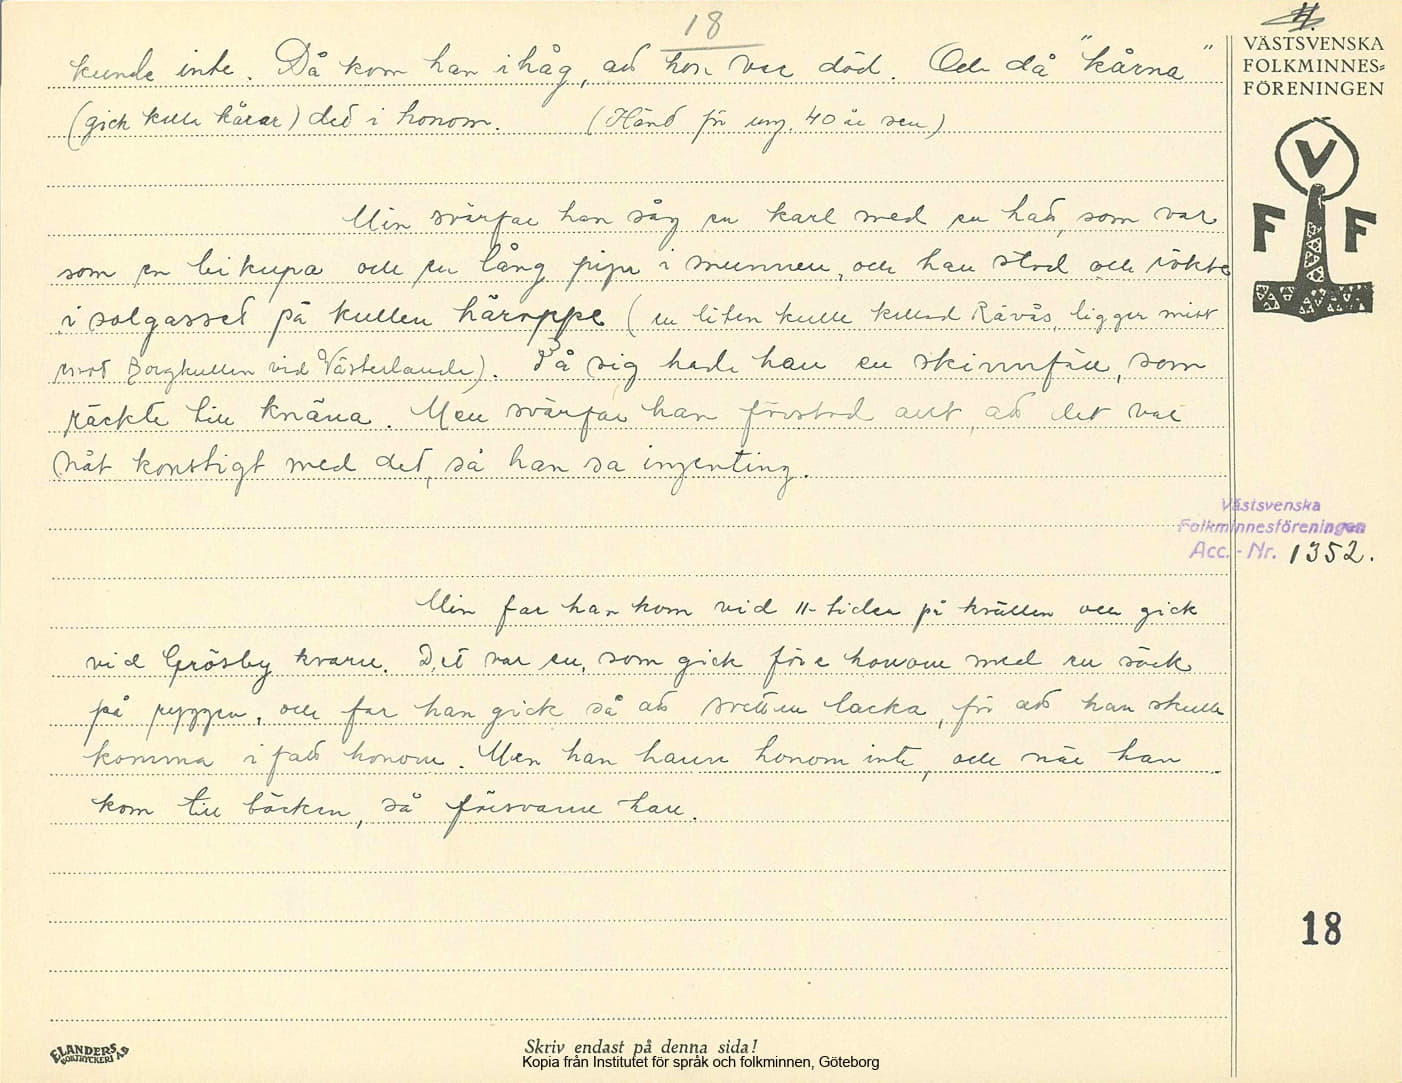 18
kunde inte. Då kom han ihåg, att hon var död. Och då "kårna"
(gick kalla kårar) det i honom. (Hänt för ung. 40 år sen)
Min svärfar han såg en karl med en hatt, som var
som en bikupa och en lång pipa i munnen, och han stod och rökte
i solgasset på kullen häroppe (en liten kulle kallad Rävås, ligger mitt
emot Borgkullen vid Västerlanda). På sig hade han en skinnfäll, som
räckte till knäna. Men svärfar han förstod allt, att det var
nåt konstigt med det, så han sa ingenting.
Min far han kom vid 11-tiden på kvällen och gick
vid Grösby kvarn. Det var en, som gick före honom med en säck
på ryggen, och far han gick så att svetten lacka, för att han skulle
komma ifatt honom. Men han hann honom inte, och när han
kom till bäcken, så försvann han.
VÄSTSVENSKA
FOLKMINNES-
FÖRENINGEN
V
F F
Västsvenska
Folkminnesföreningen
Acc.-Nr. 1352.
18
ELANDERS
BOKTRYCKERI AB
Skriv endast på denna sida!
Kopia från Institutet för språk och folkminnen, Göteborg